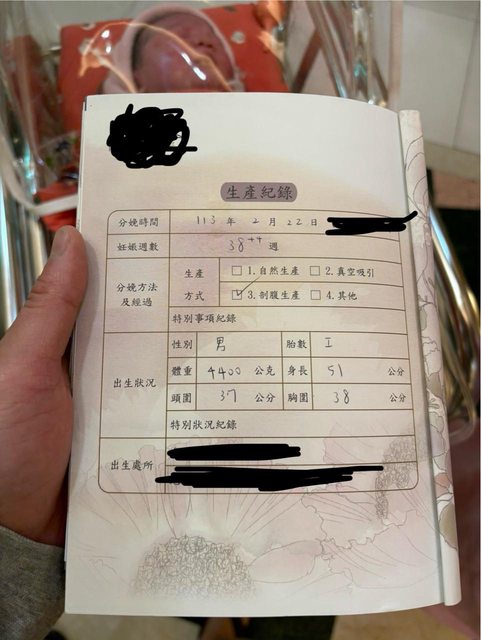 生產紀錄
分娩時間 113 年 2 月 22 日
妊娠週數 38⁺⁴ 週
分娩方法及經過 生產方式 □ 1.自然生產 □ 2.真空吸引
☑ 3.剖腹生產 □ 4.其他
特別事項紀錄
出生狀況 性別 男 胎數 I
體重 4400 公克 身長 51 公分
頭圍 37 公分 胸圍 38 公分
特別狀況紀錄
出生處所